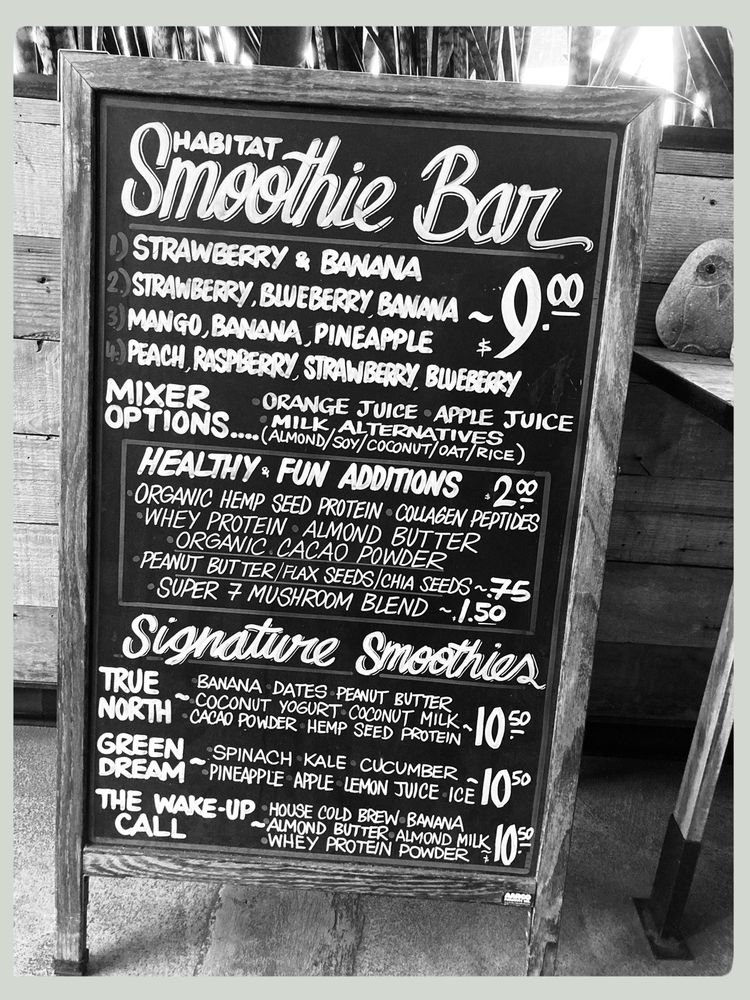 HABITAT
Smoothie Bar
1) STRAWBERRY & BANANA
2) STRAWBERRY, BLUEBERRY, BANANA ~ $9.00
3) MANGO, BANANA, PINEAPPLE
4) PEACH, RASPBERRY, STRAWBERRY, BLUEBERRY
MIXER OPTIONS....
• ORANGE JUICE • APPLE JUICE
• MILK ALTERNATIVES
(ALMOND/SOY/COCONUT/OAT/RICE)
HEALTHY & FUN ADDITIONS $2.00
• ORGANIC HEMP SEED PROTEIN • COLLAGEN PEPTIDES
• WHEY PROTEIN • ALMOND BUTTER
• ORGANIC CACAO POWDER
• PEANUT BUTTER/FLAX SEEDS/CHIA SEEDS ~.75
• SUPER 7 MUSHROOM BLEND ~1.50
Signature Smoothies
TRUE NORTH ~
• BANANA • DATES • PEANUT BUTTER
• COCONUT YOGURT • COCONUT MILK ~ 10.50
• CACAO POWDER • HEMP SEED PROTEIN
GREEN DREAM ~
• SPINACH • KALE • CUCUMBER ~ 10.50
• PINEAPPLE • APPLE • LEMON JUICE • ICE
THE WAKE-UP CALL ~
• HOUSE COLD BREW • BANANA
• ALMOND BUTTER • ALMOND MILK ~ $10.50
• WHEY PROTEIN POWDER